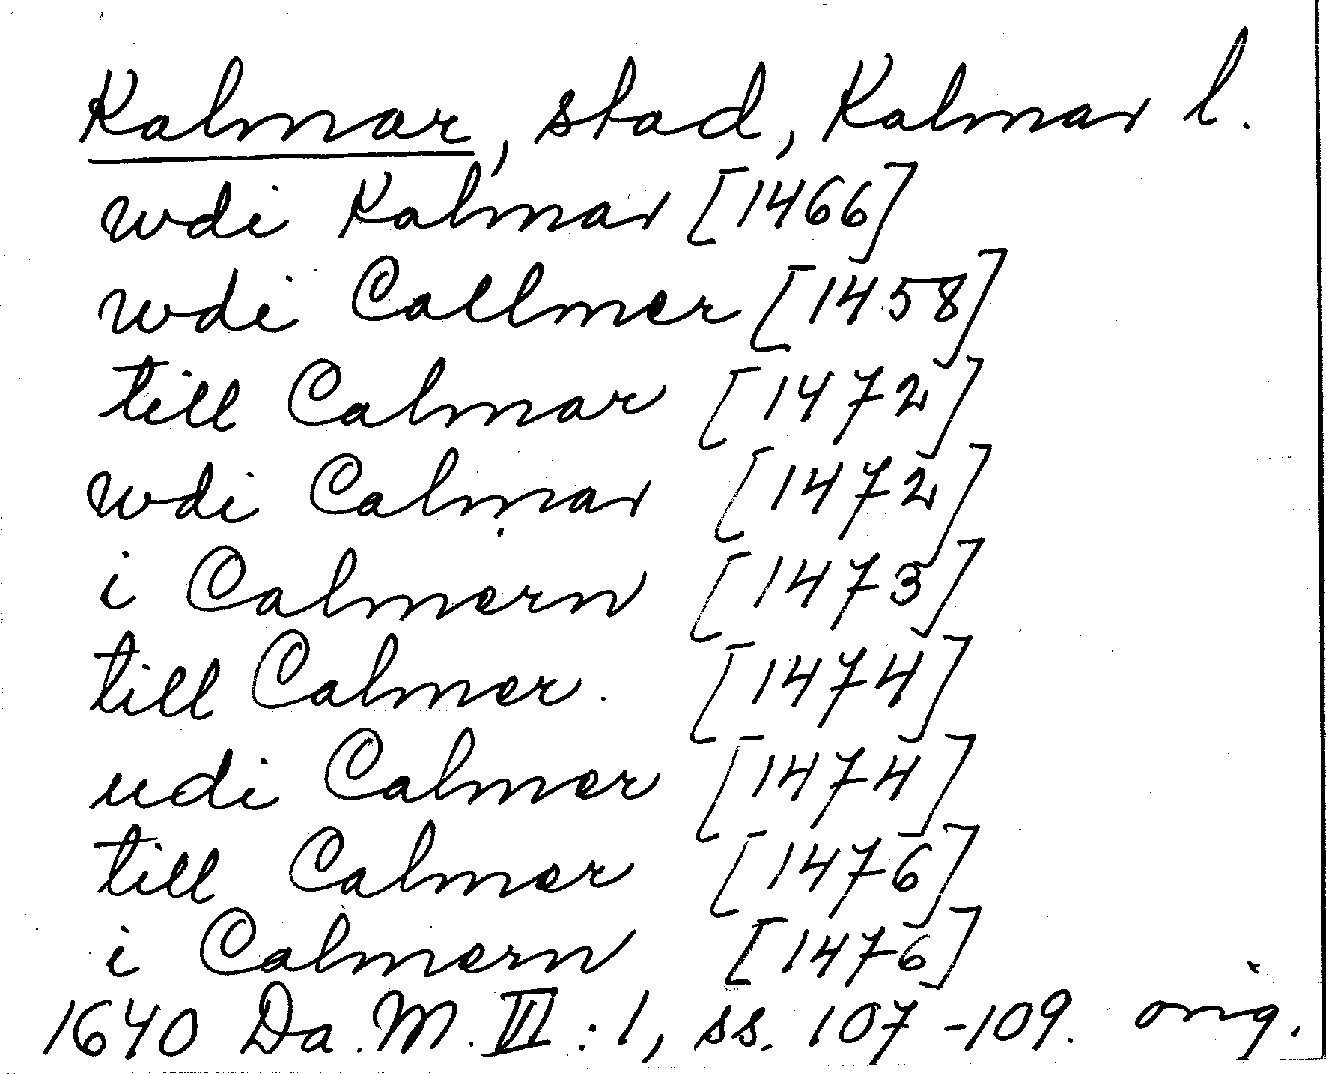 Kalmar, stad, Kalmar l.
wdi Kalmar [1466]
wdi Callmer [1458]
till Calmar [1472]
wdi Calmar [1472]
i Calmern [1473]
till Calmer. [1474]
udi Calmer [1474]
till Calmer [1476]
i Calmern [1476]
1640 Da. M. VI : 1, ss. 107-109. orig.